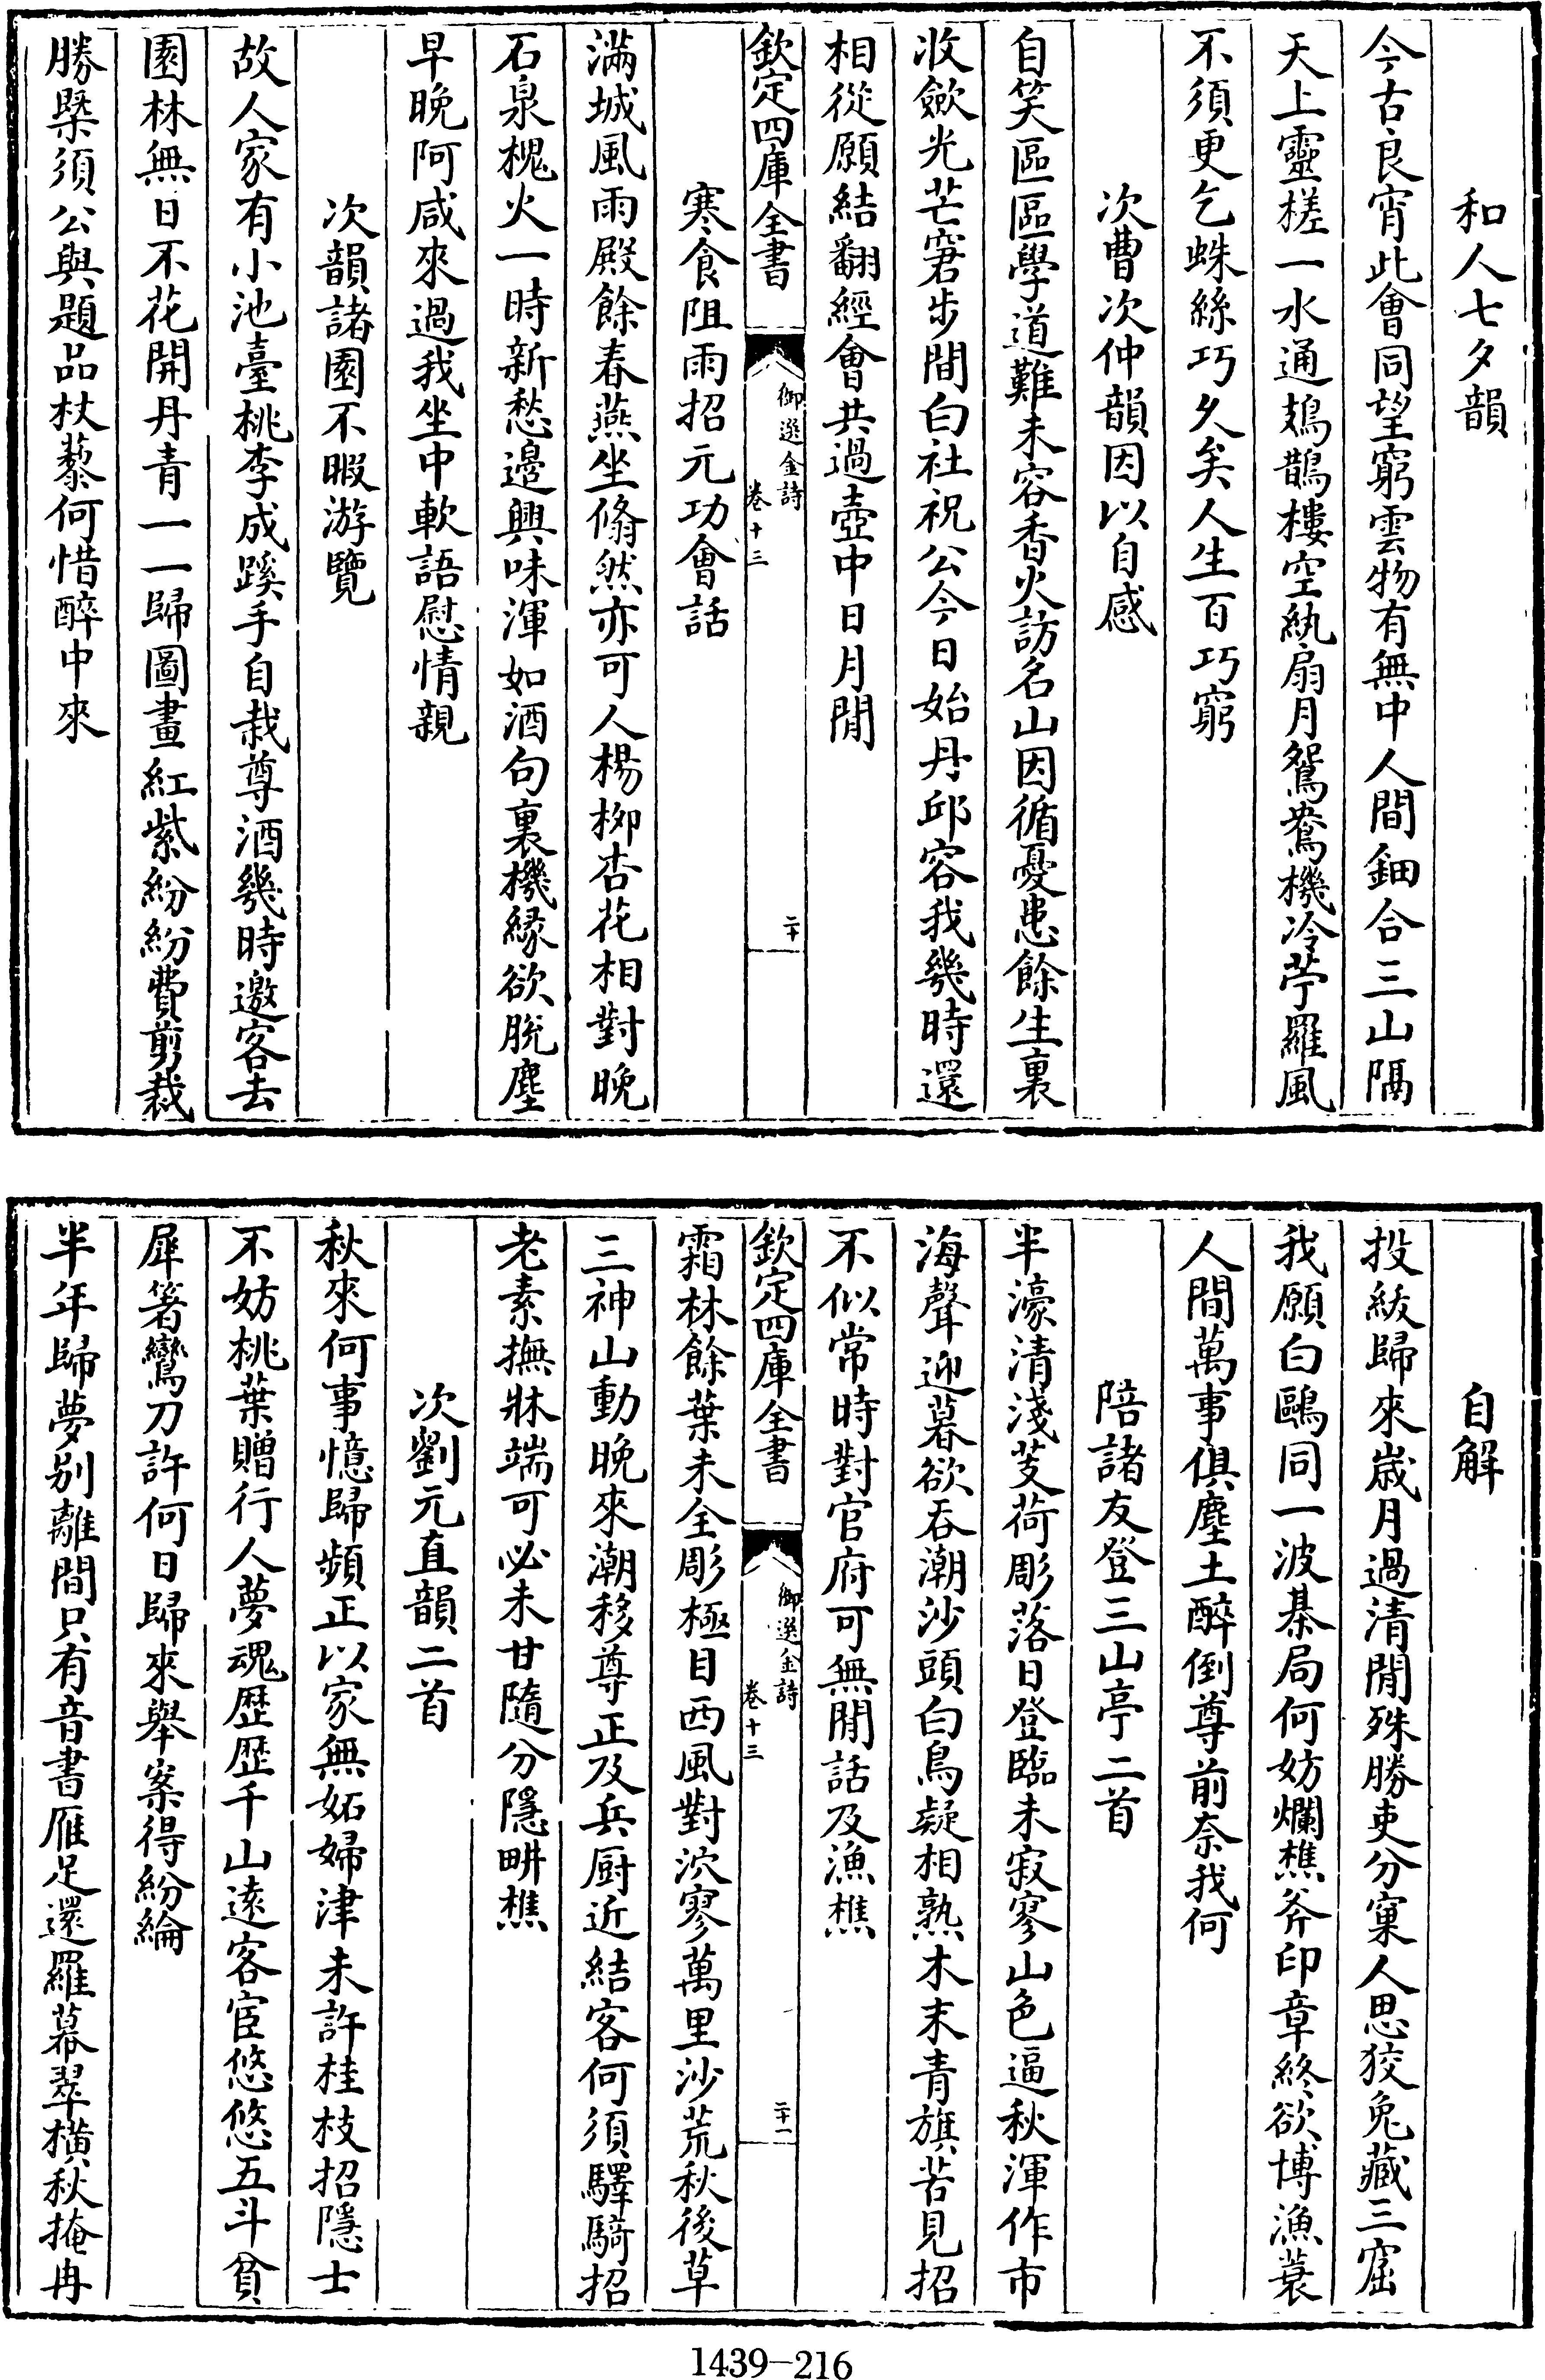 和人七夕韻
今古良宵此會同望窮雲物有無中人間鈿合三山隔
天上靈槎一水通鳷鵲樓空紈扇月鴛鴦機冷苧羅風
不須更乞蛛絲巧久矣人生百巧窮
次曹次仲韻因以自感
自笑區區學道難未容香火訪名山因循憂患餘生裏
收斂光芒窘步間白社祝公今日始丹邱容我幾時還
相從願結翻經會共過壺中日月閒
欽定四庫全書
御選金詩
卷十三
二十
寒食阻雨招元功會話
滿城風雨殿餘春燕坐翛然亦可人楊柳杏花相對晚
石泉槐火一時新愁邊興味渾如酒句裏機緣欲脫塵
早晚阿咸來過我坐中軟語慰情親
次韻諸園不暇游覽
故人家有小池臺桃李成蹊手自栽尊酒幾時邀客去
園林無日不花開丹青一一歸圖畫紅紫紛紛費剪裁
勝槩須公與題品杖藜何惜醉中來
自解
投紱歸來歲月過清閒殊勝吏分窠人思狡兔藏三窟
我願白鷗同一波棊局何妨爛樵斧印章終欲博漁蓑
人間萬事俱塵土醉倒尊前奈我何
陪諸友登三山亭二首
半濠清淺芰荷彫落日登臨未寂寥山色逼秋渾作市
海聲迎暮欲吞潮沙頭白鳥疑相熟木末青旗苦見招
不似常時對官府可無閒話及漁樵
欽定四庫全書
御選金詩
卷十三
二十一
霜林餘葉未全彫極目西風對泬寥萬里沙荒秋後草
三神山動晚來潮移尊正及兵厨近結客何須驛騎招
老素撫牀端可必未甘隨分隱畊樵
次劉元直韻二首
秋來何事憶歸頻正以家無妬婦津未許桂枝招隱士
不妨桃葉贈行人夢魂歷歷千山遠客宦悠悠五斗貧
犀箸鸞刀許何日歸來舉案得紛綸
半年歸夢別離間只有音書雁足還羅幕翠橫秋掩冉
1439-216